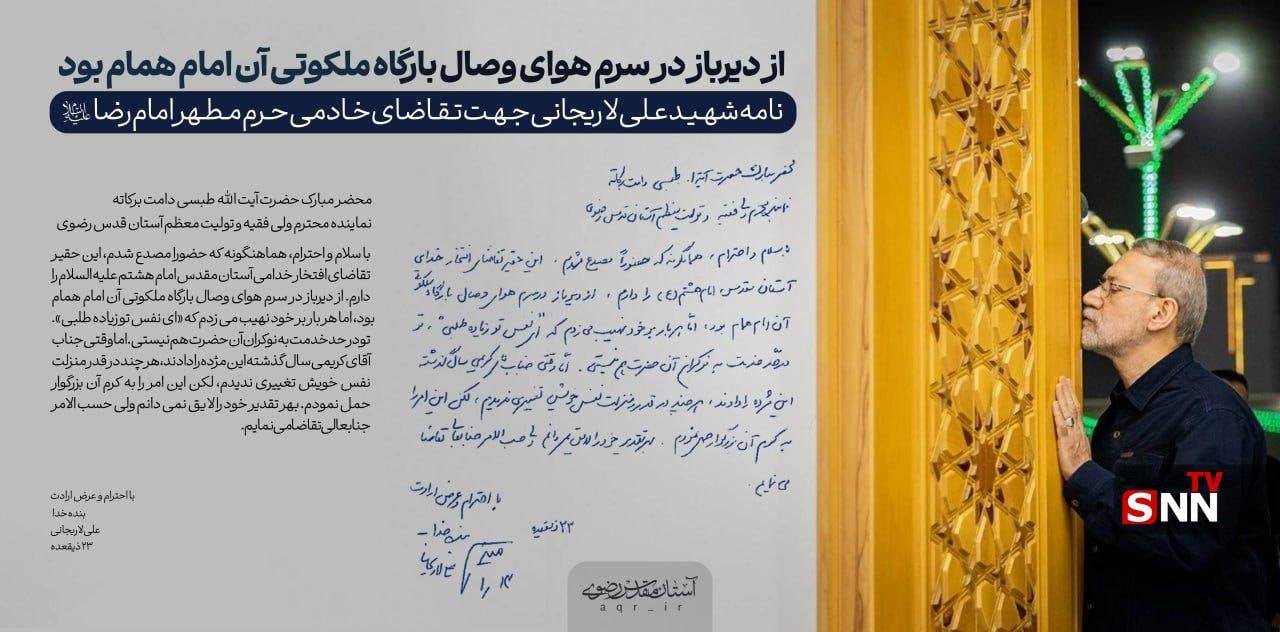 از دیرباز در سرم هوای وصال بارگاه ملکوتی آن امام همام بود
نامه شهید علی لاریجانی جهت تقاضای خادمی حرم مطهر امام رضا علیه‌السلام
محضر مبارک حضرت آیت الله طبسی دامت برکاته
نماینده محترم ولی فقیه و تولیت معظم آستان قدس رضوی
با سلام و احترام، هماهنگونه که حضورا مصدع شدم، این حقیر
تقاضای افتخار خدامی آستان مقدس امام هشتم علیه السلام را
دارم. از دیرباز در سرم هوای وصال بارگاه ملکوتی آن امام همام
بود، اما هر بار بر خود نهیب می زدم که «ای نفس تو زیاده طلبی».
تو در حد خدمت به نوکران آن حضرت هم نیستی. اما وقتی جناب
آقای کریمی سال گذشته این مژده را دادند، هر چند در قدر منزلت
نفس خویش تغییری ندیدم، لکن این امر را به کرم آن بزرگوار
حمل نمودم. بهر تقدیر خود را لایق نمی دانم ولی حسب الامر
جنابعالی تقاضا می نمایم.
با احترام و عرض ارادت
بنده خدا
علی لاریجانی
۲۳ ذیقعده
محضر مبارک حضرت آیة ا.. طبسی دامت برکاته
نماینده محترم ولی فقیه و تولیت معظم آستان قدس رضوی
با سلام و احترام، همانگونه که حضوراً مصدع شدم، این حقیر تقاضای افتخار خدامی
آستان مقدس امام هشتم (ع) را دارم، از دیرباز در سرم هوای وصال بارگاه ملکوتی
آن امام همام بود، اما هر بار بر خود نهیب می زدم که "ای نفس تو زیاده طلبی"، تو
در حد خدمت به نوکران آن حضرت هم نیستی. اما وقتی جناب آقای کریمی سال گذشته
این مژده را دادند، هر چند در قدر و منزلت نفس خویش تغییری ندیدم، لکن این امر را
به کرم آن بزرگوار حمل نمودم. بهر تقدیر خود را لایق نمی دانم ولی حسب الامر جنابعالی تقاضا
می نمایم.
با احترام و عرض ارادت
۲۳ ذیقعده
بنده خدا
علی لاریجانی
آستان مقدس رضوی
aqr_ir
SNN TV